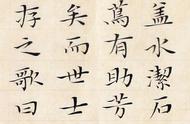 盖水潔石
蔦有助芳
矣而世士
存之歌曰